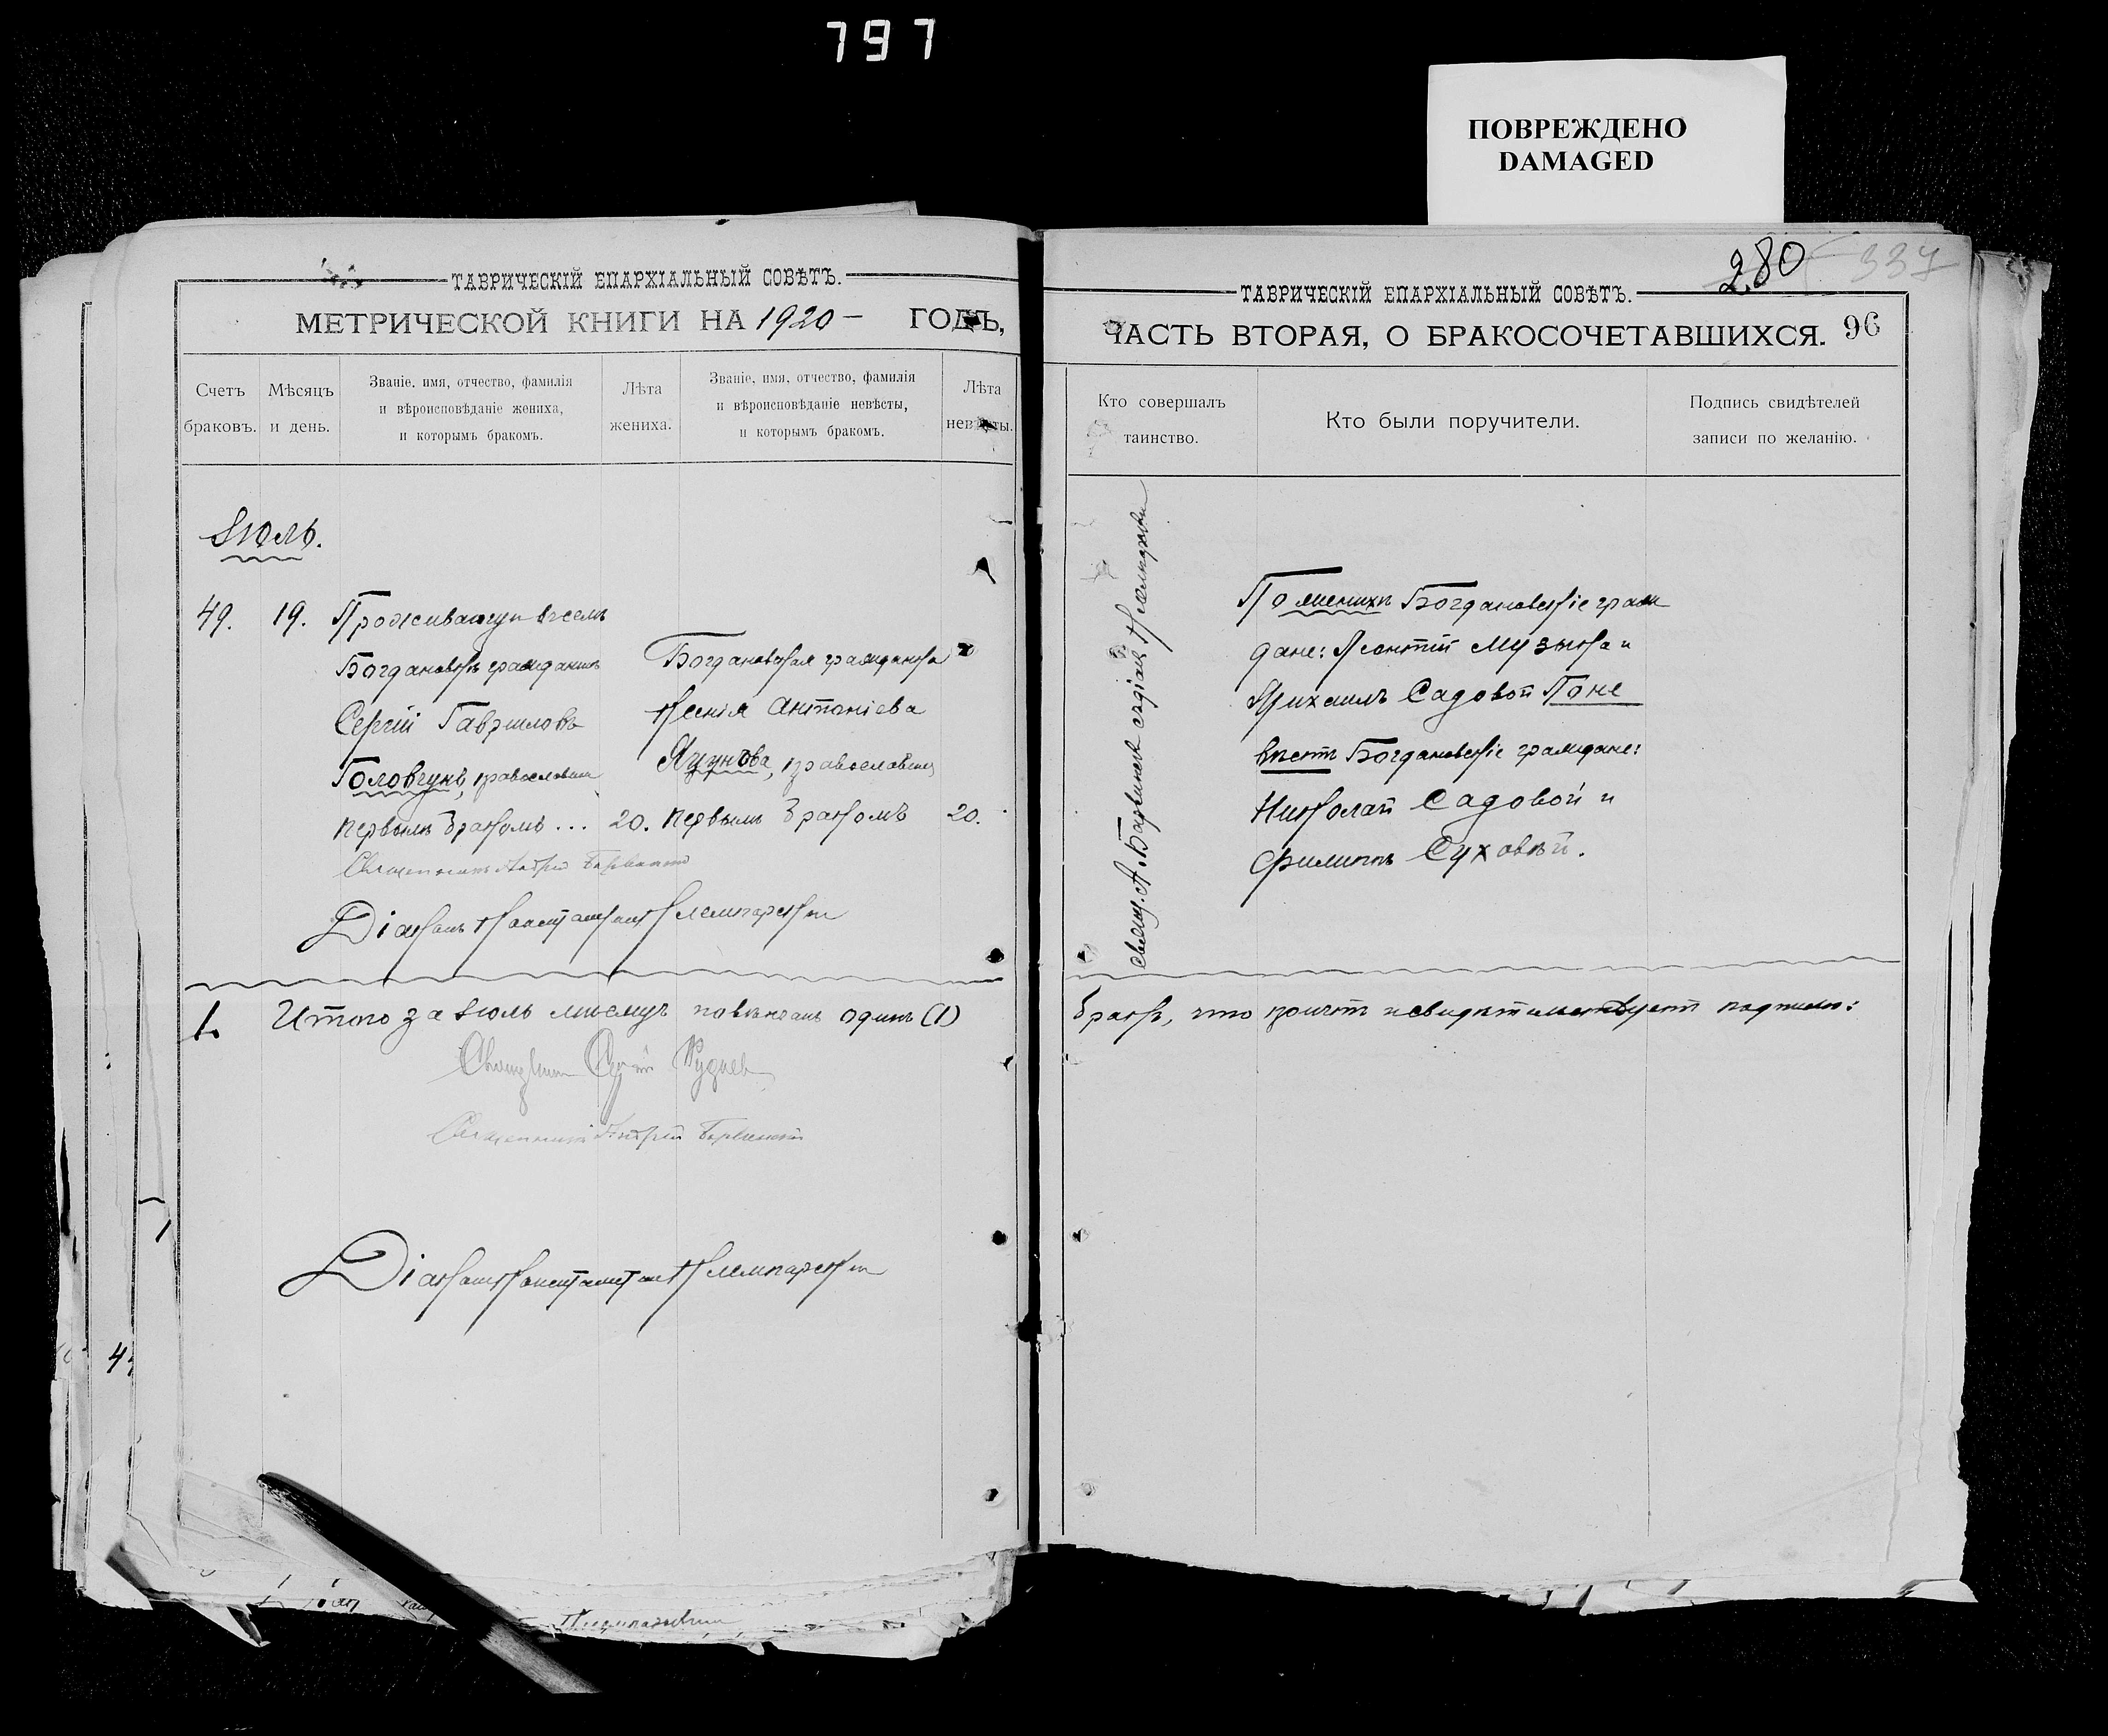 797
ПОВРЕЖДЕНО
DAMAGED
280
337
ТАВРИЧЕСКІЙ ЕПАРХІАЛЬНЫЙ СОВѢТЪ.
МЕТРИЧЕСКОЙ КНИГИ НА 1920 – ГОДЪ,
Счетъ браковъ.
Мѣсяцъ и день.
Званіе, имя, отчество, фамилія
и вѣроисповѣданіе жениха,
и которымъ бракомъ.
Лѣта жениха.
Званіе, имя, отчество, фамилія
и вѣроисповѣданіе невѣсты,
и которымъ бракомъ.
Лѣта невѣсты.
Іюль.
49. 19. Проживающій въ селѣ
Богдановкѣ гражданинъ
Сергій Гавриловъ
Головчунъ, православный
первымъ бракомъ... 20.
Богдановская гражданка
Ксенія Антоніева
Яцунова, православный
первымъ бракомъ 20.
Священникъ Андрей
Діаконъ Константинъ Клемпарскій
1. Итого за Іюль мѣсяцъ повѣнчанъ одинъ (1)
Священникъ Сергій Руднев
Священникъ Андрей
Діаконъ Константинъ Клемпарскій
ТАВРИЧЕСКІЙ ЕПАРХІАЛЬНЫЙ СОВѢТЪ.
ЧАСТЬ ВТОРАЯ, О БРАКОСОЧЕТАВШИХСЯ. 96
Кто совершалъ таинство.
Кто были поручители.
Подпись свидѣтелей
записи по желанію.
Свящ. А. съ діак. Клемпарскимъ
По женихѣ Богдановскіе граж-
дане: Леонтій Музыка и
Михаилъ Садовой По не
вѣстѣ Богдановскіе граждане:
Николай Садовой и
Филиппъ Суховѣй.
бракъ, что причтъ и свидѣтельствуетъ подписью: